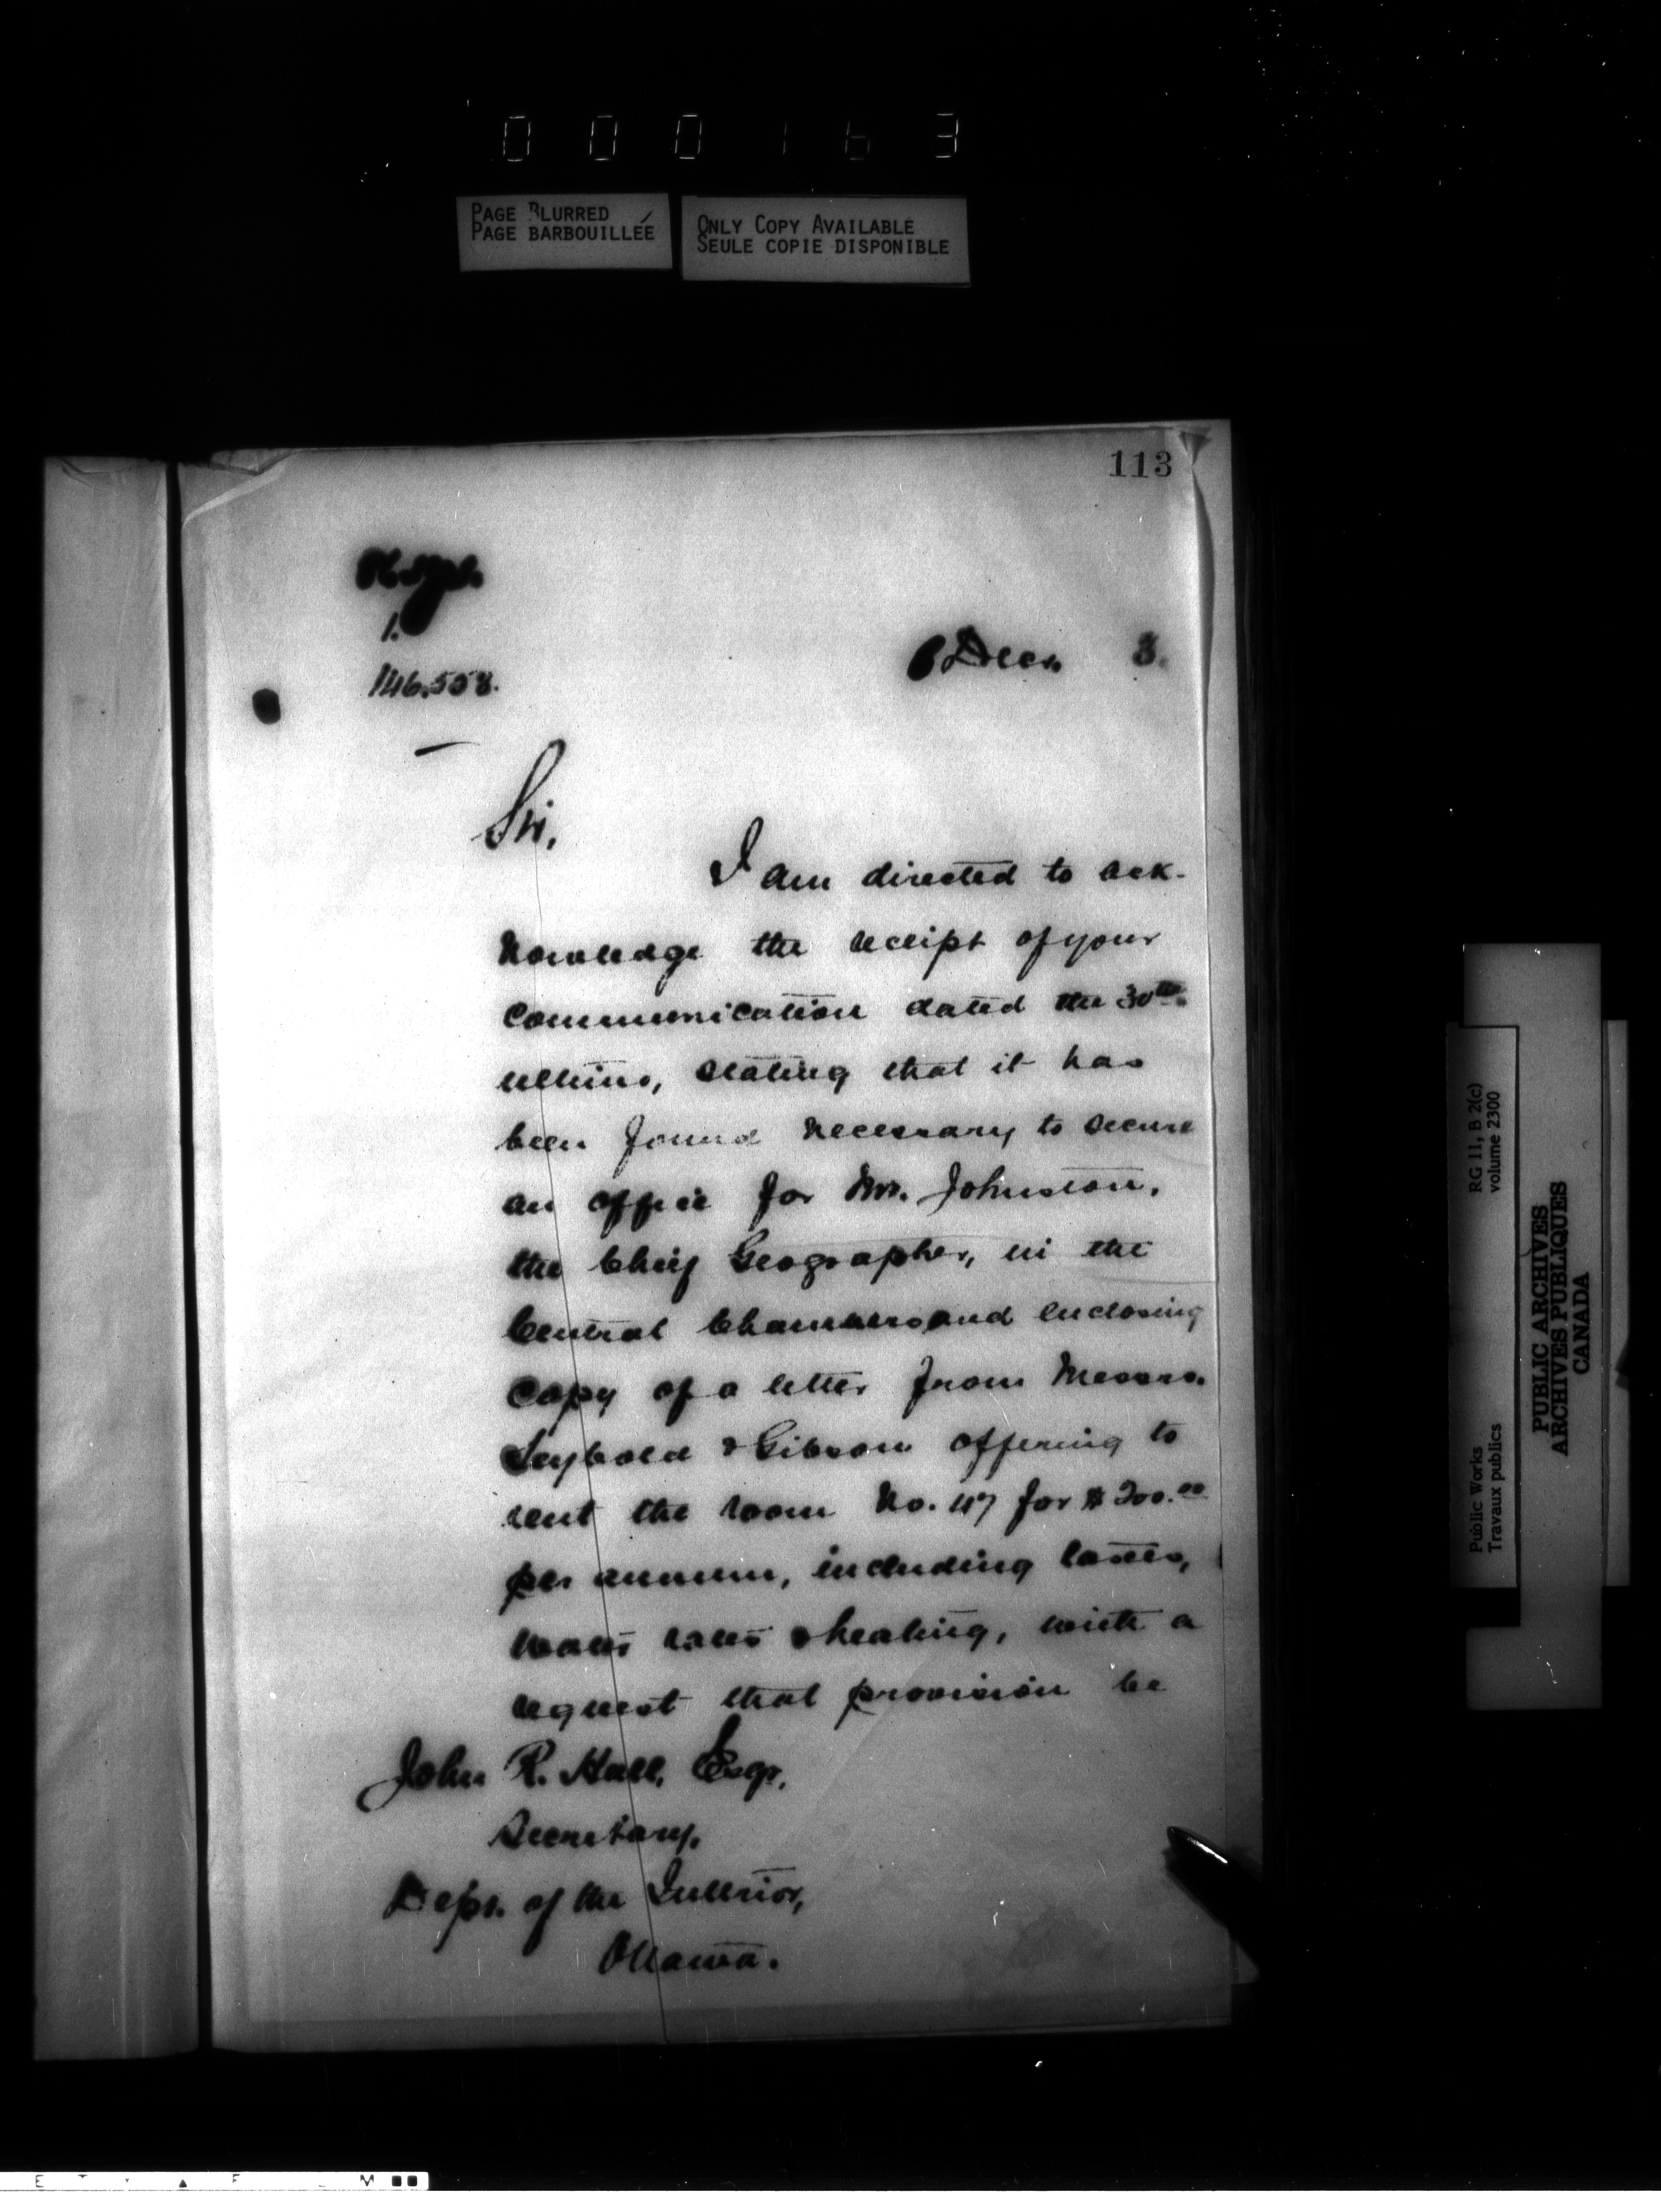 0 0 0 1 6 3
PAGE BLURRED
PAGE BARBOUILLÉE
ONLY COPY AVAILABLE
SEULE COPIE DISPONIBLE
113
1.
146.508.
6 Decr. 3.
Sir,
I am directed to ack-
nowledge the receipt of your
communication dated the 30th
ultimo, stating that it has
been found necessary to secure
an office for Mr. Johnston,
the Chief Geographer, in the
Central Chambers and enclosing
copy of a letter from Messrs.
Seybold & Gibson offering to
rent the room No. 47 for $200.00
per annum, including taxes,
water rates & heating, with a
request that provision be
John R. Hall, Esqr.
Secretary,
Dept. of the Interior,
Ottawa.
RG 11, B 2(c)
volume 2300
Public Works
Travaux publics
PUBLIC ARCHIVES
ARCHIVES PUBLIQUES
CANADA